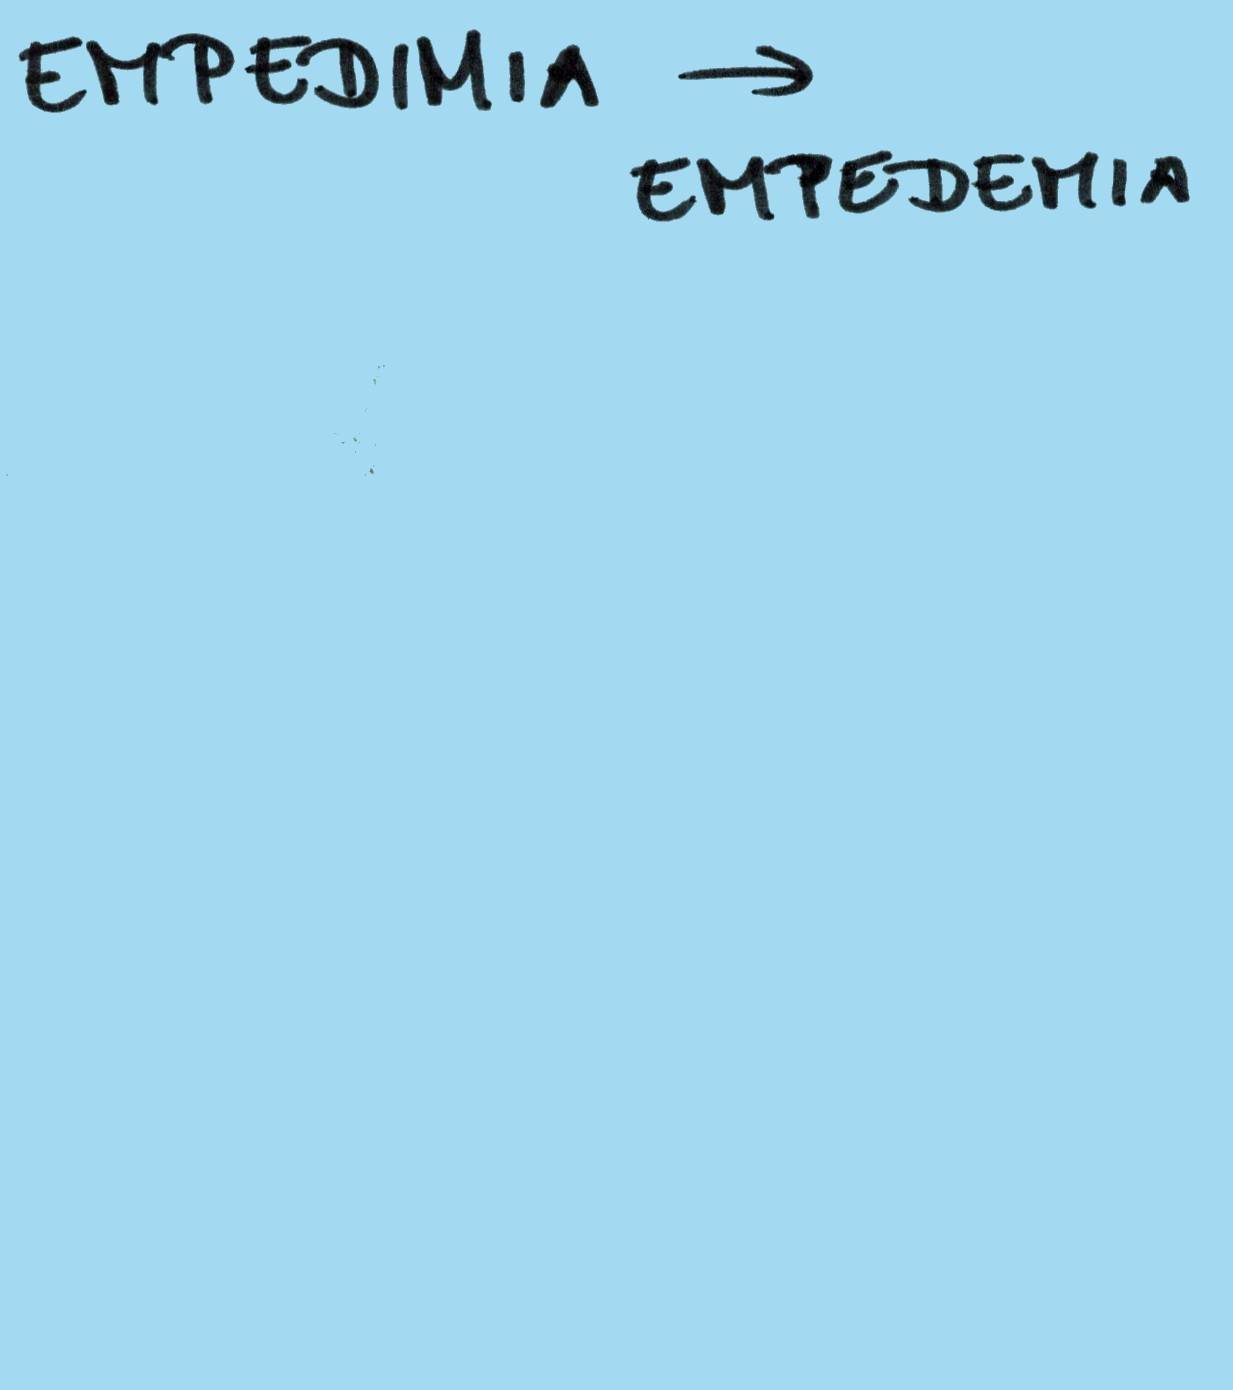 EMPEDIMIA →
EMPEDEMIA